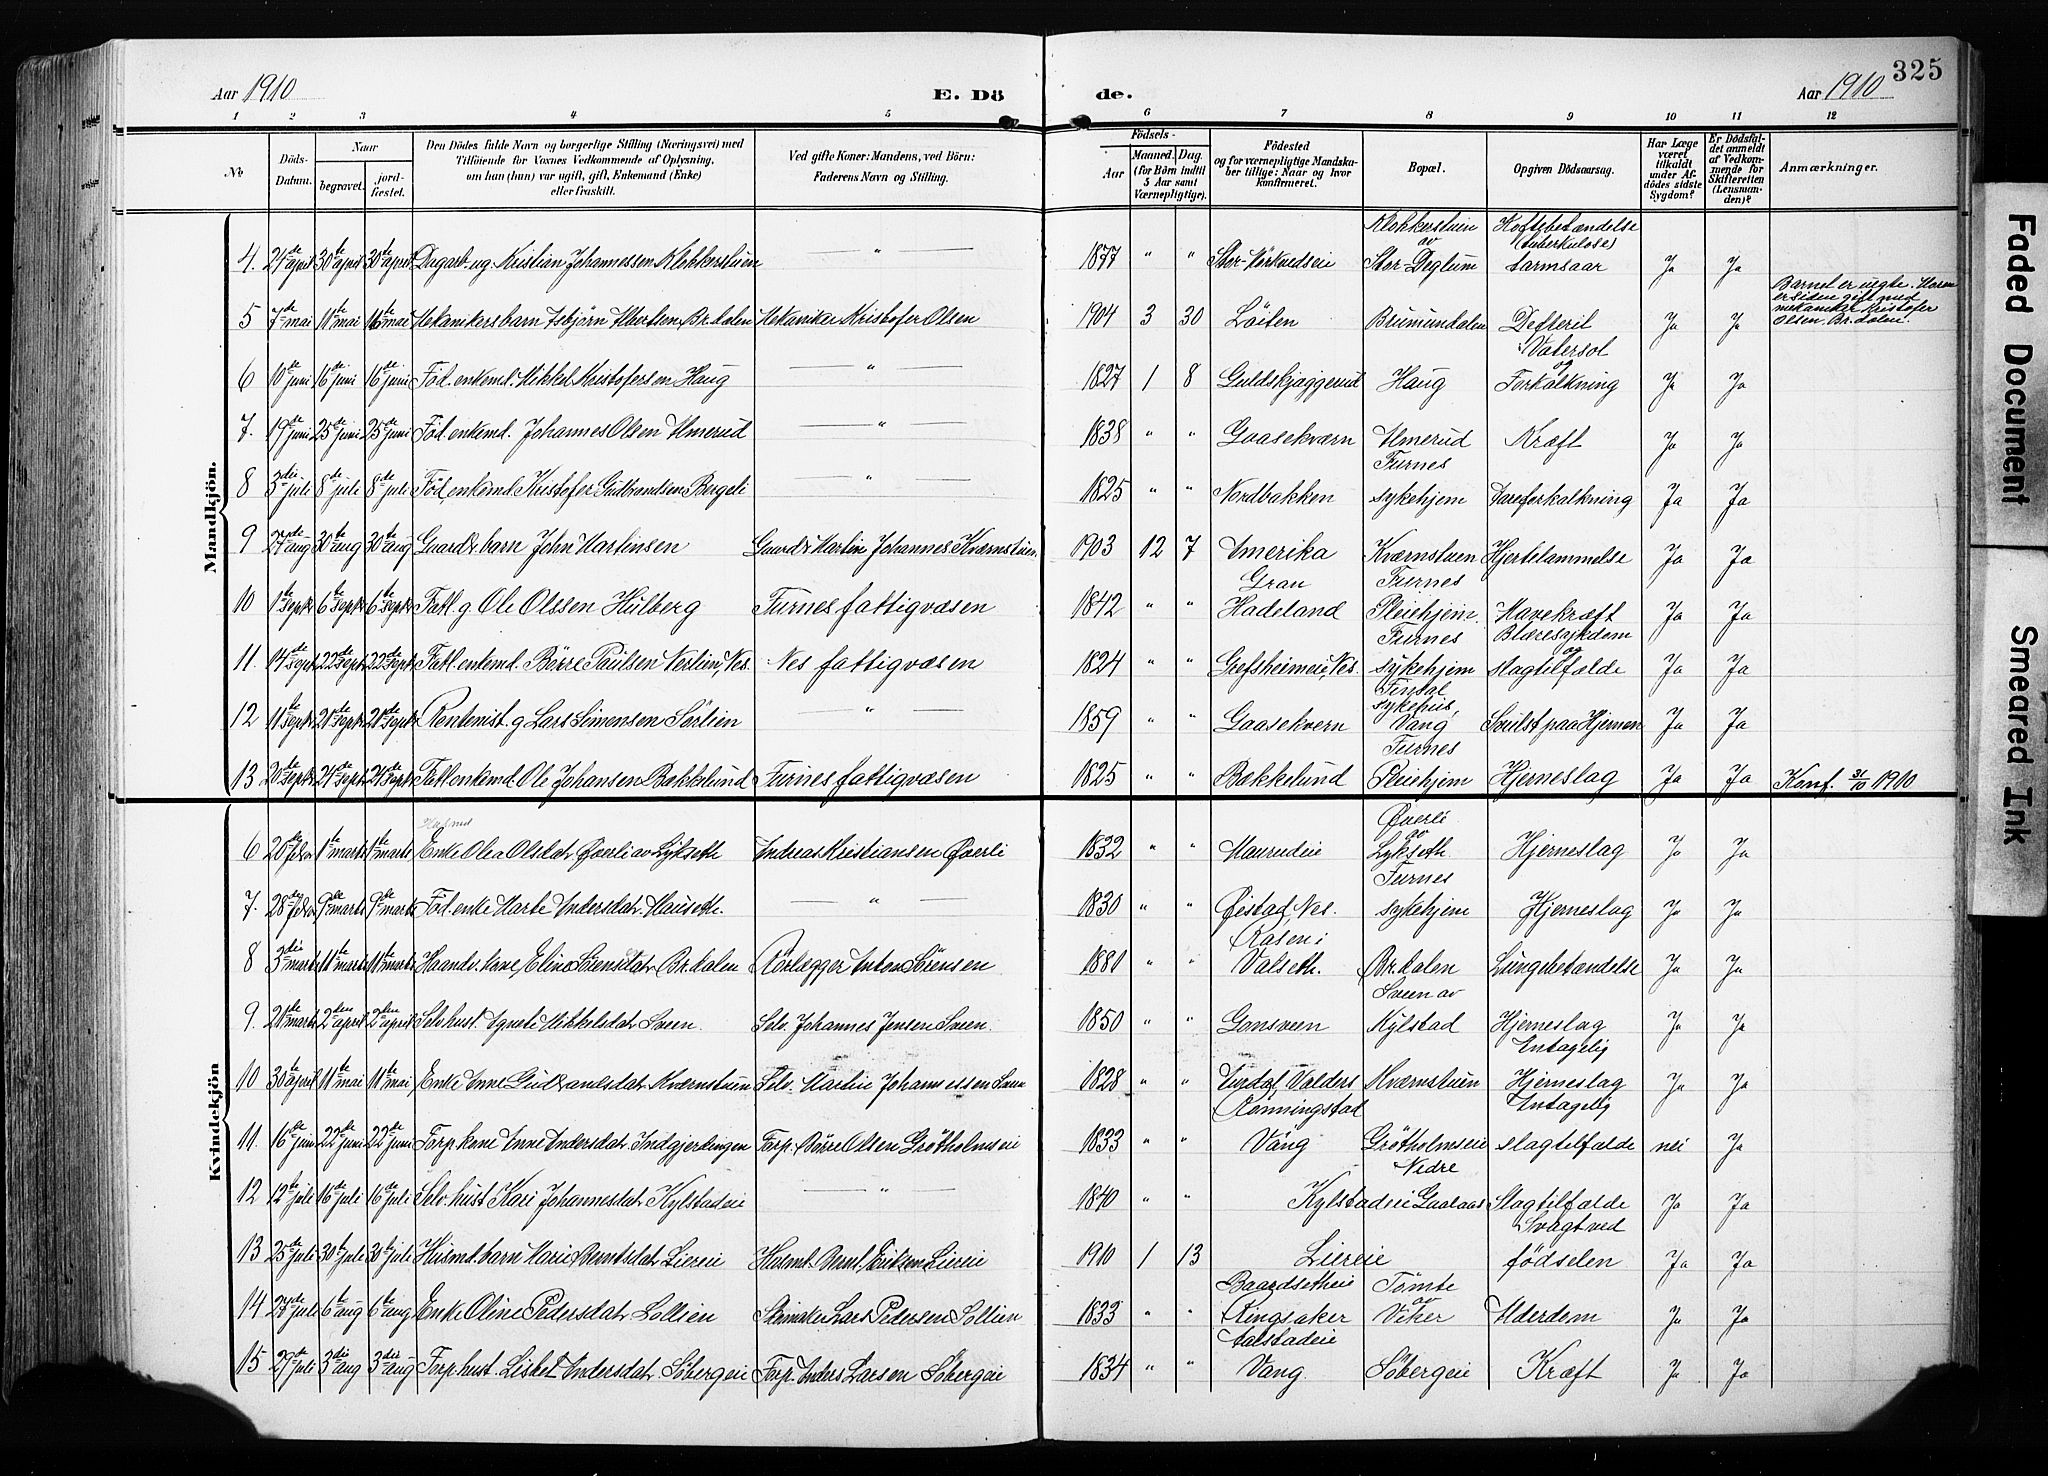 325
Aar 1910 E. Dö de. Aar 1910
1 2 3 4 5 6 7 8 9 10 11 12
No
Döds-Datum.
Naar
begravet. jord-fæstet.
Den Dödes fulde Navn og borgerlige Stilling (Næringsvei) med
Tilföiende for Voxnes Vedkommende af Oplysning.
om han (hun) var ugift, gift, Enkemand (Enke)
eller fraskilt.
Ved gifte Koner: Mandens, ved Börn:
Faderens Navn og Stilling.
Födsels-
Aar
Maaned. Dag.
(for Börn indtil
5 Aar samt
Værnepligtige).
Födested
og for værnepligtige Mandska-
ber tillige: Naar og hvor
konfirmeret.
Bopæl.
Opgiven Dödsaarsag.
Har Læge
været
tilkaldt
under Af-
dödes sidste
Sygdom?
Er Dödsfal-
det anmeldt
af Vedkom-
mende for
Skifteretten
(Lensman-
den)?
Anmærkninger.
Mandkjön.
4. 24de april 30te april 30te april Dagarb. ug. Kristian Johannessen Klokkerstuen " 1877 " " Stor-Mörkvedseie Klokkerstuen av Stor-Deglum Hoftebetændelse (tuberkulose) tarmsaar Ja Ja
5 7de mai 11te mai 16te mai Mekanikersbarn Asbjörn Albertsen Br.dalen Mekaniker Kristofer Olsen 1904 3 30 Löiten Brumundalen Defterit Ja Ja Barnet er uegte. Moren er siden gift med mekaniker Kristofer Olsen, Br.dalen.
6 10de juni 16te juni 16te juni Föd. enkemd. Mikkel Kristofersen Haug " 1827 1 8 Guldskjæggerud Haug Vatersot og Forkalkning Ja Ja
7. 19de juni 25de juni 25de juni Föd. enkemd. Johannes Olsen Almerud " 1838 " " Gaasekværn Almerud Kræft Ja Ja
8 3die juli 8de juli 8de juli Föd. enkemd. Kristofer Gudbrandsen Bergeli " 1825 " " Nordbakken Furnes sykehjem Aareforkalkning Ja Ja
9 27de aug 30te aug 30te aug Gaardbr. barn John Martinsen Gaardbr. Martin Johannes. Kværnstuen 1903 12 7 Amerika Kværnstuen Hjertelammelse Ja Ja
10 1ste septr 6te septr 6te septr Fatl. g. Ole Olssen Hulberg Furnes fattigvæsen 1842 " " Gran Hadeland Furnes Pleiehjem. Mavekræft Ja Ja
11. 14de septr 22de septr 22de septr Fatl. enkemd. Börre Paulsen Neslien, Nes. Nes fattigvæsen 1824 " " Gefsheimeie, Nes. Furnes sykehjem Blæresykdom og slagtilfælde Ja Ja
12 11te septr 21de septr 21de septr Rentenist. g. Lars Simensen Sörlien " 1859 " " Gaasekvern sykehus, Vang Svulst paa Hjernen Ja Ja
13 20de septr 24de septr 24de septr Fatl. enkemd. Ole Johansen Bækkelund Furnes fattigvæsen 1825 " " Bækkelund Furnes Pleiehjem Hjerneslag Ja Ja Konf. 31/10 1910
Kvindekjön
6 20de febr 1ste marts 1ste marts Husmd Enke Olea Olsdatr Överli av Lykseth Andreas Kristiansen Överli 1832 " " Maurudeie Överli av Lykseth. Hjerneslag Ja Ja
7. 28de febr 9de marts 9de marts Föd. enke Marte Andersdatr. Hauseth. " 1830 " " Öistad, Nes. Furnes sykehjem Hjerneslag Ja Ja
8 3die marts 11te marts 11te marts Haandv. kone Eline Sörensdatr Br.dalen Rörlægger Anton Sörensen 1881 " " Rasen i Valseth. Br.dalen Lungebetændelse Ja Ja
9. 21de marts 2den april 2den april Selv. hust. Agnete Mikkelsdatr Sveen. Selv. Johannes Jensen Sveen. 1850 " " Gonsveen Sveen av Kylstad Hjerneslag Ja Ja
10 30te april 11te mai 11te mai Enke Anne Gudbrandsdatr Kværnstuen Selv. Martin Johannessen Sveen 1828 " " Aurdal, Valders Kværnstuen Antagelig Hjerneslag Ja Ja
11. 16de juni 22de juni 22de juni Forp. kone Anne Andersdatr Indgjerdingen Forp. Börre Olsen Grötholmseie 1833 " " Rönningstad Vang Grötholmseie Antagelig slagtilfælde nei Ja
12 12te juli 16de juli 16de juli Selv. hust. Kari Johannesdatr Kylstadeie " 1840 " " Kylstadeie Nedre Gaalaas Slagtilfælde Ja Ja
13 25de juli 30te juli 30te juli Husmd. barn Marie Berntsdatr Liereie Husmd. Bernt Eriksen Liereie 1910 1 13 Liereie Svagt ved födselen Ja Ja
14 27de juli 6te aug 6te aug Enke Oline Pedersdatr Sollien Skomaker Lars Pedersen Sollien 1833 " " Baardsetheie Ringsaker Tömte av Viker Alderdom Ja Ja
15 27de juli 3die aug 3die aug Forp. hust. Lisbet Andersdatr. Söbergeie Forp. Anders Larsen Söbergeie 1834 " " Aalstadeie Vang. Söbergeie Kræft Ja Ja
Faded Document
Smeared Ink